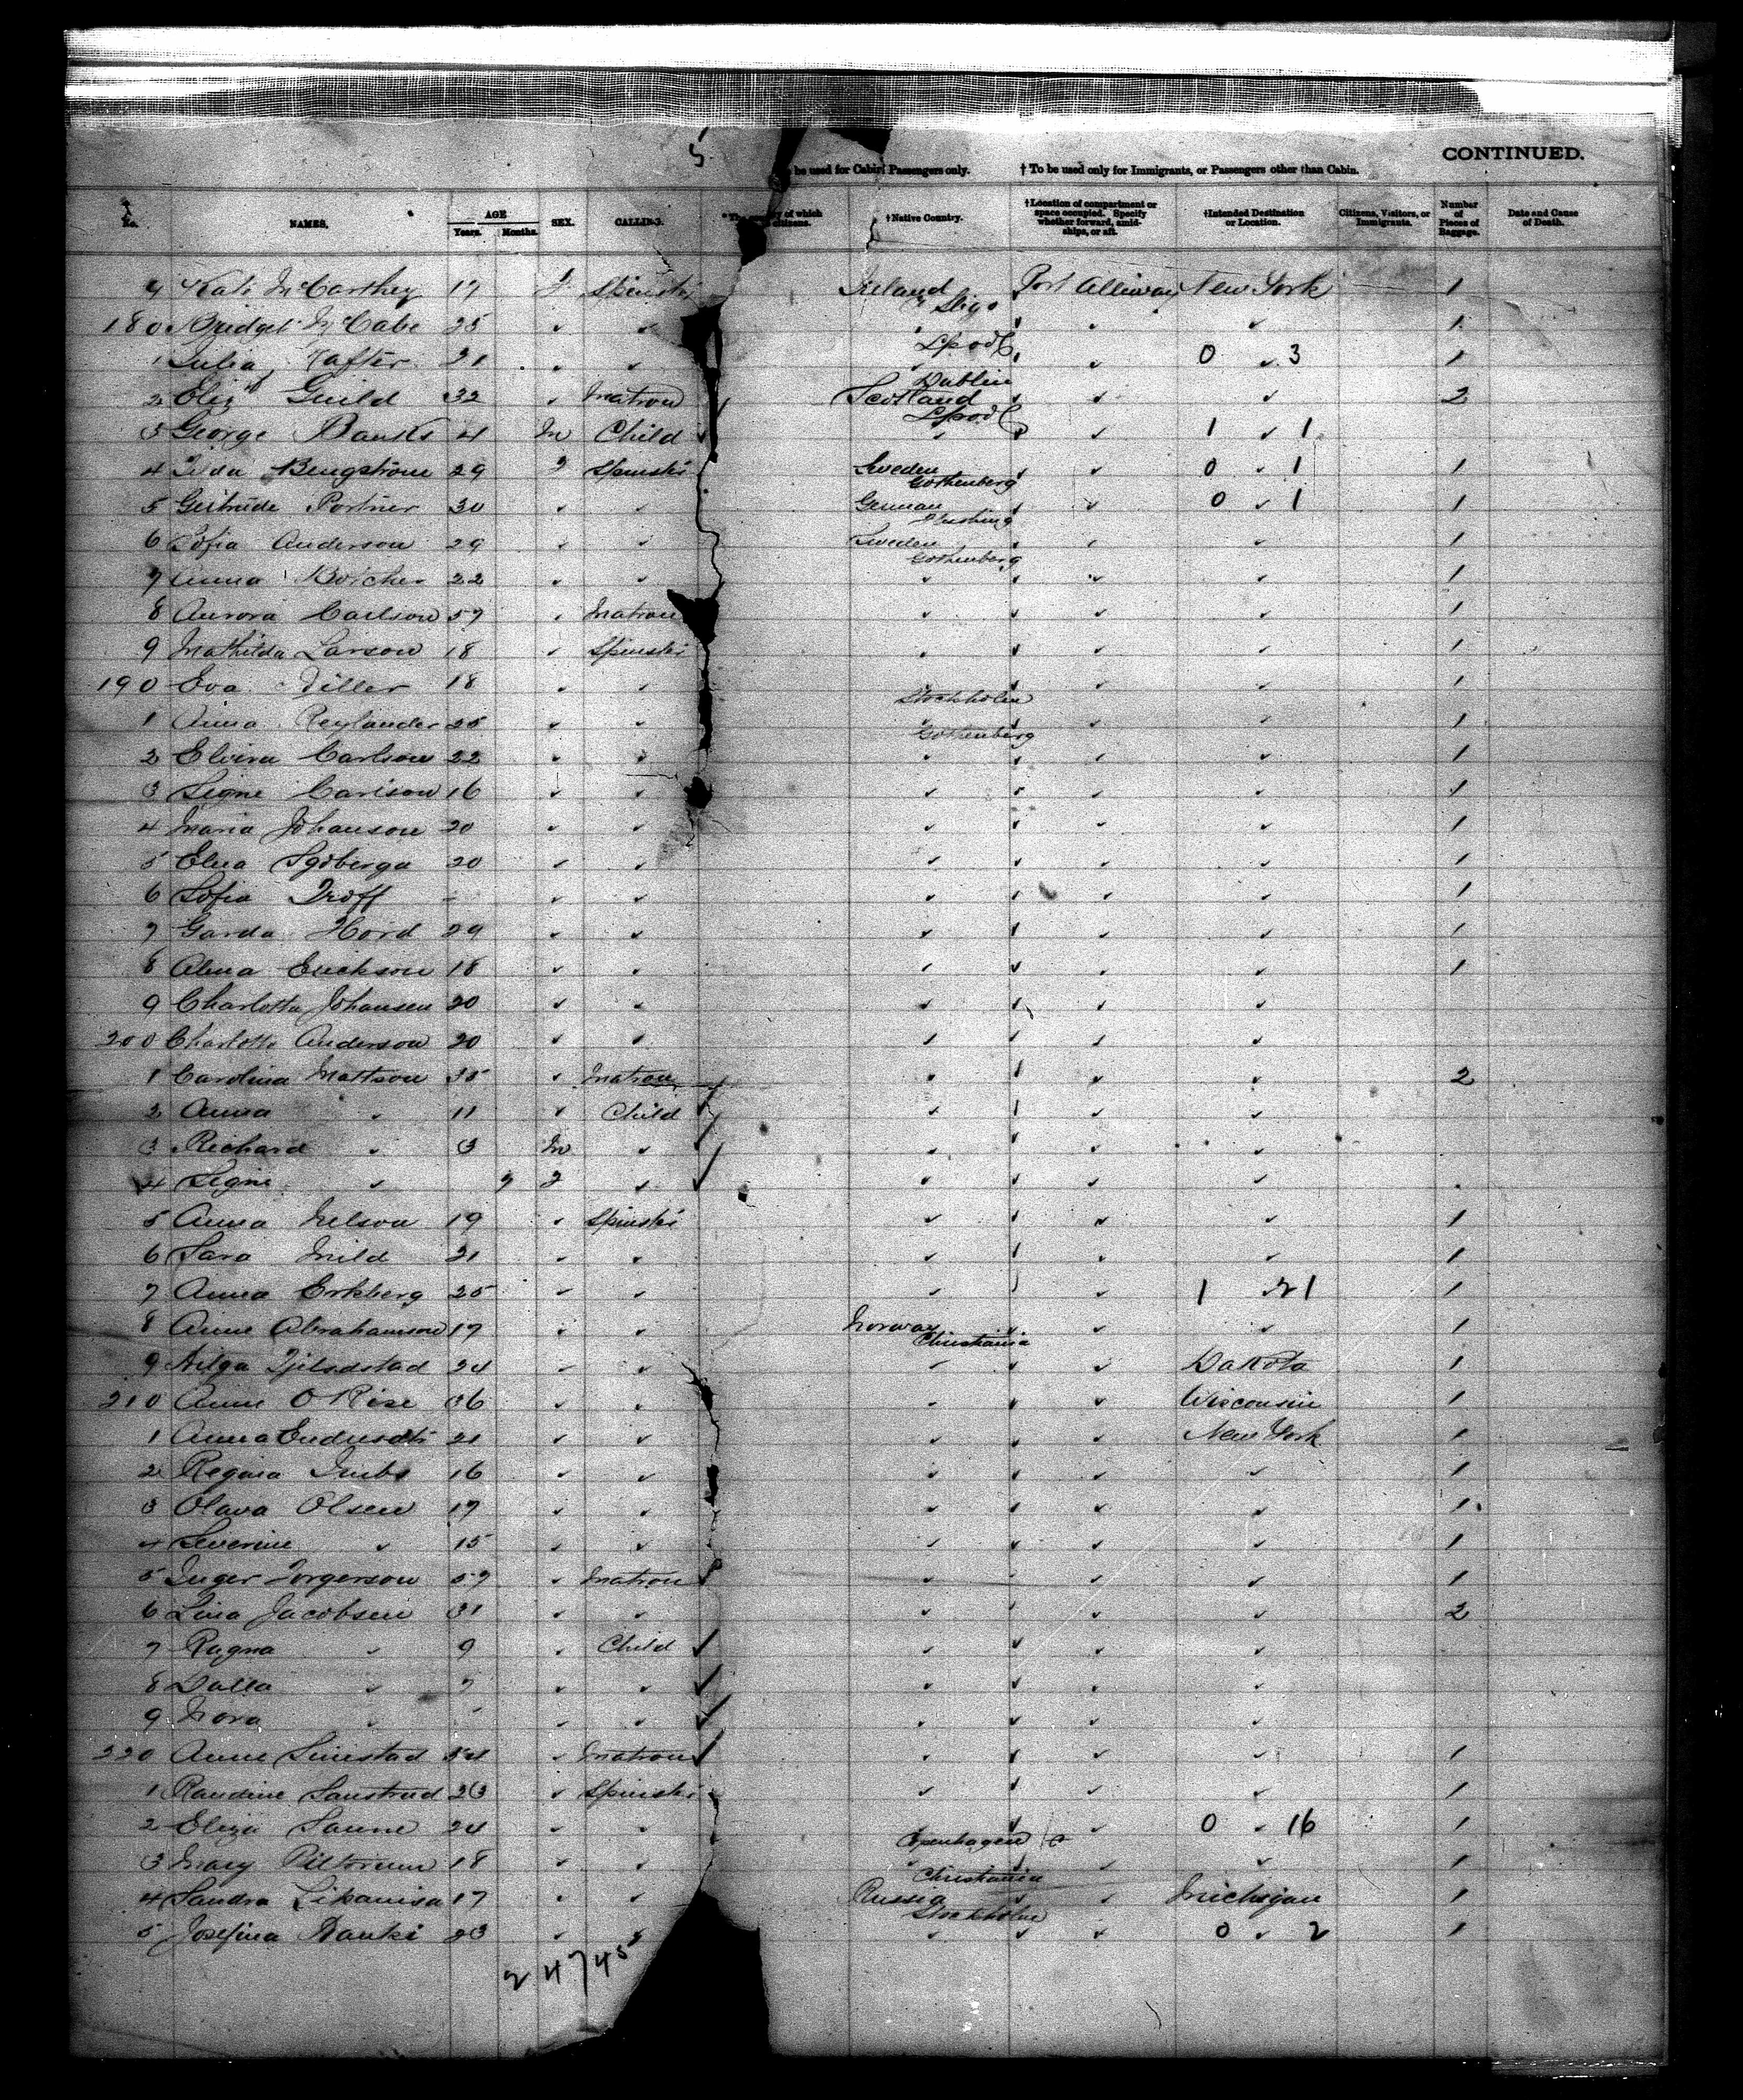 5
CONTINUED.
be used for Cabin Passengers only. † To be used only for Immigrants, or Passengers other than Cabin.
No. NAMES. AGE Years. Months. SEX. CALLING. of which citizens. †Native Country. †Location of compartment or space occupied. Specify whether forward, amidships, or aft. †Intended Destination or Location. Citizens, Visitors, or Immigrants. Number of Pieces of Baggage. Date and Cause of Death.
9 Kate McCarthey 17 f Spinster Ireland Port Alleway New York 1
Sligo
180 Bridget McCabe 25 " " " " " " 1
Lpool
1 Julia Rafter 21 " " " " " 0 " 3 1
Dublin
2 Eliz'th Guild 32 " Matron Scotland " " " 2
Lpool
3 George Banks 4 M Child " " " 1 " 1
4 Bengstrom 29 f Spinster Sweden " " 0 " 1 1
Gothenberg
5 Gertrude Portner 30 " " German " " 0 " 1 1
Flushing
6 Sofia Anderson 29 " " Sweden " " " 1
Gothenberg
7 Anna Botcher 22 " " " " " " 1
8 Aurora Carlson 57 " Matron " " " " 1
9 Mathilda Larson 18 " Spinster " " " " 1
190 Eva Diller 18 " " " " " " 1
Stockholm
1 Anna Reylander 25 " " " " " " 1
Gothenberg
2 Elvira Carlson 22 " " " " " " 1
3 Signe Carlson 16 " " " " " " 1
4 Maria Johanson 20 " " " " " " 1
5 Elna 20 " " " " " " 1
6 Sofia Troff - " " " " " " 1
7 Garda Hord 29 " " " " " " 1
8 Alma Erickson 18 " " " " " " 1
9 Charlotta Johansen 20 " " " " " "
200 Charlotte Anderson 20 " " " " " "
1 Carolina Mattson 35 " Matron " " " " 2
2 Anna " 11 " Child " " " "
3 Richard " 3 M " " " " "
4 Signe " 9 f " " " " "
5 Anna Nelson 19 " Spinster " " " " 1
6 Sara Mild 21 " " " " " " 1
7 Anna Erkberg 25 " " " " " 1 " 21 1
8 Anne Abrahamson 17 " " Norway " " " 1
Christiania
9 Helga 24 " " " " " Dakota 1
210 Anne O Rise 36 " " " " " Wisconsin 1
1 Anna 21 " " " " " New York 1
2 Regina 16 " " " " " " 1
3 Olava Olsen 17 " " " " " " 1
4 Severine " 15 " " " " " " 1
5 Inger Torgerson 57 " Matron " " " " 1
6 Lina Jacobsen 31 " " " " " " 2
7 Ragna " 9 " Child " " " "
8 Dalla " 7 " " " " " "
9 Nora " " " " " " "
220 Anne Simestad 54 " Matron " " " " 1
1 Randine Sanstrud 23 " Spinster " " " " 1
2 Eliza 24 " " " " " 0 " 16 1
Copenhagen
3 Mary 18 " " " " " " 1
Christiania
4 Sandra 17 " " Russia " " Michigan 1
Stockholm
5 Josefina 23 " " " " " 0 " 2 1
24745